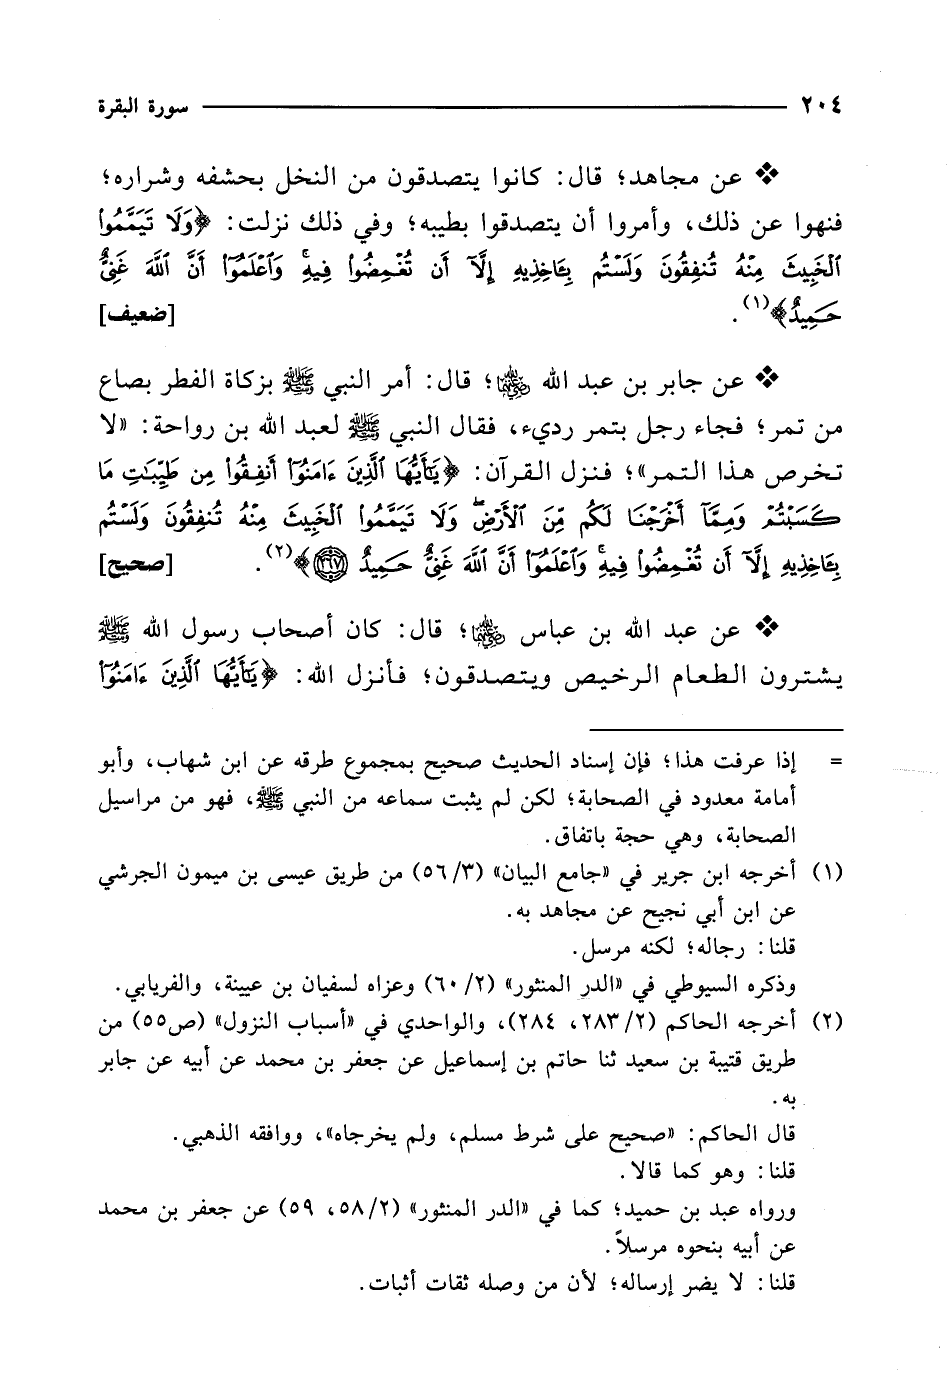 ٢٠٤ سورة البقرة
❖ عن مجاهد؛ قال: كانوا يتصدقون من النخل بحشفه وشراره؛
فنهوا عن ذلك، وأمروا أن يتصدقوا بطيبه؛ وفي ذلك نزلت: ﴿وَلَا تَيَمَّمُوا۟
ٱلْخَبِيثَ مِنْهُ تُنفِقُونَ وَلَسْتُم بِـَٔاخِذِيهِ إِلَّآ أَن تُغْمِضُوا۟ فِيهِ ۚ وَٱعْلَمُوٓا۟ أَنَّ ٱللَّهَ غَنِىٌّ
حَمِيدٌ﴾(١). [ضعيف]
❖ عن جابر بن عبد الله رضي الله عنهما؛ قال: أمر النبي ﷺ بزكاة الفطر بصاع
من تمر؛ فجاء رجل بتمر رديء، فقال النبي ﷺ لعبد الله بن رواحة: «لا
تخرص هذا التمر»؛ فنزل القرآن: ﴿يَـٰٓأَيُّهَا ٱلَّذِينَ ءَامَنُوٓا۟ أَنفِقُوا۟ مِن طَيِّبَـٰتِ مَا
كَسَبْتُمْ وَمِمَّآ أَخْرَجْنَا لَكُم مِّنَ ٱلْأَرْضِ ۖ وَلَا تَيَمَّمُوا۟ ٱلْخَبِيثَ مِنْهُ تُنفِقُونَ وَلَسْتُم
بِـَٔاخِذِيهِ إِلَّآ أَن تُغْمِضُوا۟ فِيهِ ۚ وَٱعْلَمُوٓا۟ أَنَّ ٱللَّهَ غَنِىٌّ حَمِيدٌ ﴿٢٦٧﴾﴾(٢). [صحيح]
❖ عن عبد الله بن عباس رضي الله عنهما؛ قال: كان أصحاب رسول الله ﷺ
يشترون الطعام الرخيص ويتصدقون؛ فأنزل الله: ﴿يَـٰٓأَيُّهَا ٱلَّذِينَ ءَامَنُوٓا۟
= إذا عرفت هذا؛ فإن إسناد الحديث صحيح بمجموع طرقه عن ابن شهاب، وأبو
أمامة معدود في الصحابة؛ لكن لم يثبت سماعه من النبي ﷺ، فهو من مراسيل
الصحابة، وهي حجة باتفاق.
(١) أخرجه ابن جرير في «جامع البيان» (٥٦/٣) من طريق عيسى بن ميمون الجرشي
عن ابن أبي نجيح عن مجاهد به.
قلنا: رجاله؛ لكنه مرسل.
وذكره السيوطي في «الدر المنثور» (٦٠/٢) وعزاه لسفيان بن عيينة، والفريابي.
(٢) أخرجه الحاكم (٢٨٣/٢، ٢٨٤)، والواحدي في «أسباب النزول» (ص٥٥) من
طريق قتيبة بن سعيد ثنا حاتم بن إسماعيل عن جعفر بن محمد عن أبيه عن جابر
به.
قال الحاكم: «صحيح على شرط مسلم، ولم يخرجاه»، ووافقه الذهبي.
قلنا: وهو كما قالا.
ورواه عبد بن حميد؛ كما في «الدر المنثور» (٥٨/٢، ٥٩) عن جعفر بن محمد
عن أبيه بنحوه مرسلاً.
قلنا: لا يضر إرساله؛ لأن من وصله ثقات أثبات.